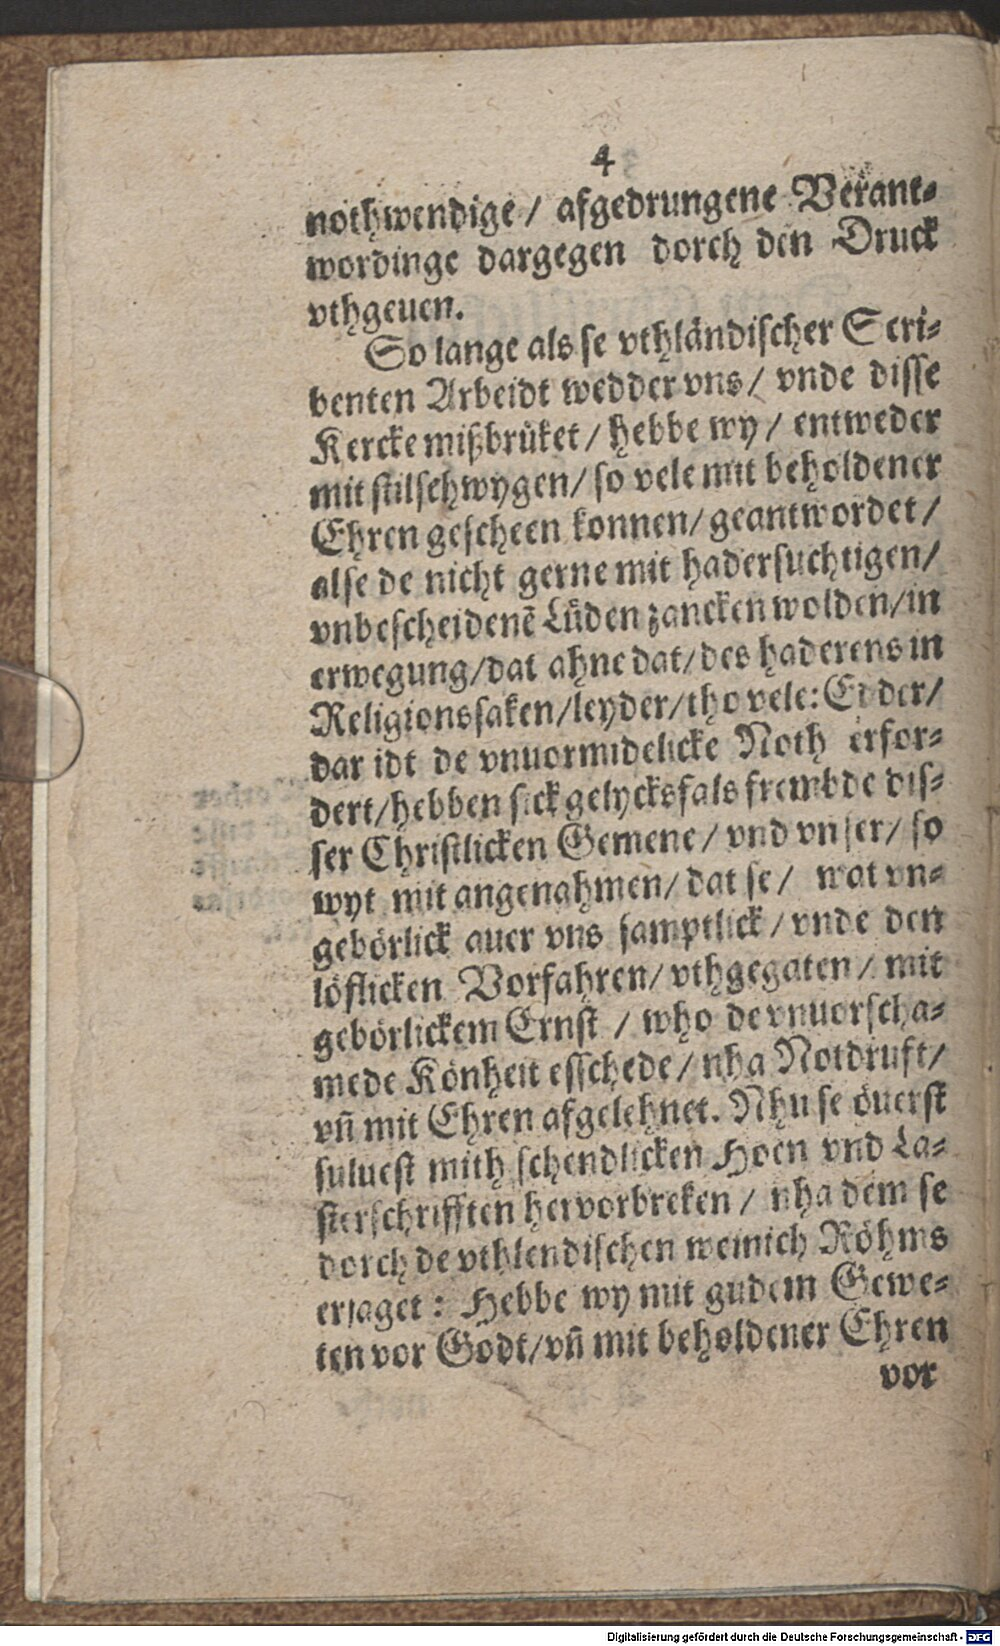 4
nothwendige / afgedrungene Verant⸗
wordinge dargegen dorch den Druck
vthgeuen.
So lange als se vthländischer Scri⸗
benten Arbeidt wedder vns / vnde disse
Kercke mißbrüket / hebbe wy / entweder
mit stilschwygen / so vele mit beholdener
Ehren gescheen konnen / geantwordet /
alse de nicht gerne mit hadersuchtigen /
vnbescheidenē Lüden zancken wolden / in
erwegung / dat ahne dat / des haderens in
Religionssaken / leyder / tho vele: Edder /
dar idt de vnuormidelicke Noth erfor⸗
dert / hebben sick gelycksfals frembde dis⸗
ser Christlicken Gemene / vnd vnser / so
wyt mit angenahmen / dat se / wat vn⸗
gebörlick auer vns samptlick / vnde den
löflicken Vorfahren / vthgegaten / mit
gebörlickem Ernst / who de vnuorscha⸗
mede Könheit esschede / nha Notdruft /
vñ mit Ehren afgelehnet. Nhu se öuerst
suluest mith schendlicken Hoen vnd La⸗
sterschrifften hervorbreken / nha dem se
dorch de vthlendischen weinich Röhms
erjaget : Hebbe wy mit gudem Gewe⸗
ten vor Godt / vñ mit beholdener Ehren
vor
Digitalisierung gefördert durch die Deutsche Forschungsgemeinschaft - DFG